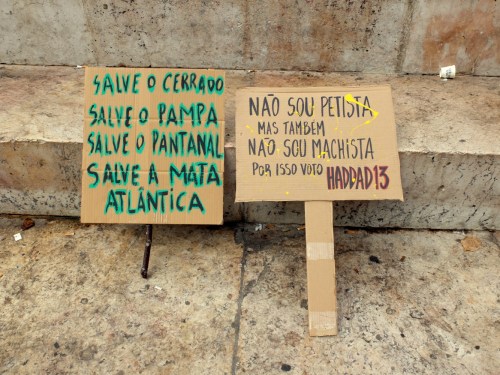 SALVE O CERRADO
SALVE O PAMPA
SALVE O PANTANAL
SALVE A MATA
ATLÂNTICA
NÃO SOU PETISTA
MAS TAMBEM
NÃO SOU MACHISTA
POR ISSO VOTO HADDAD13